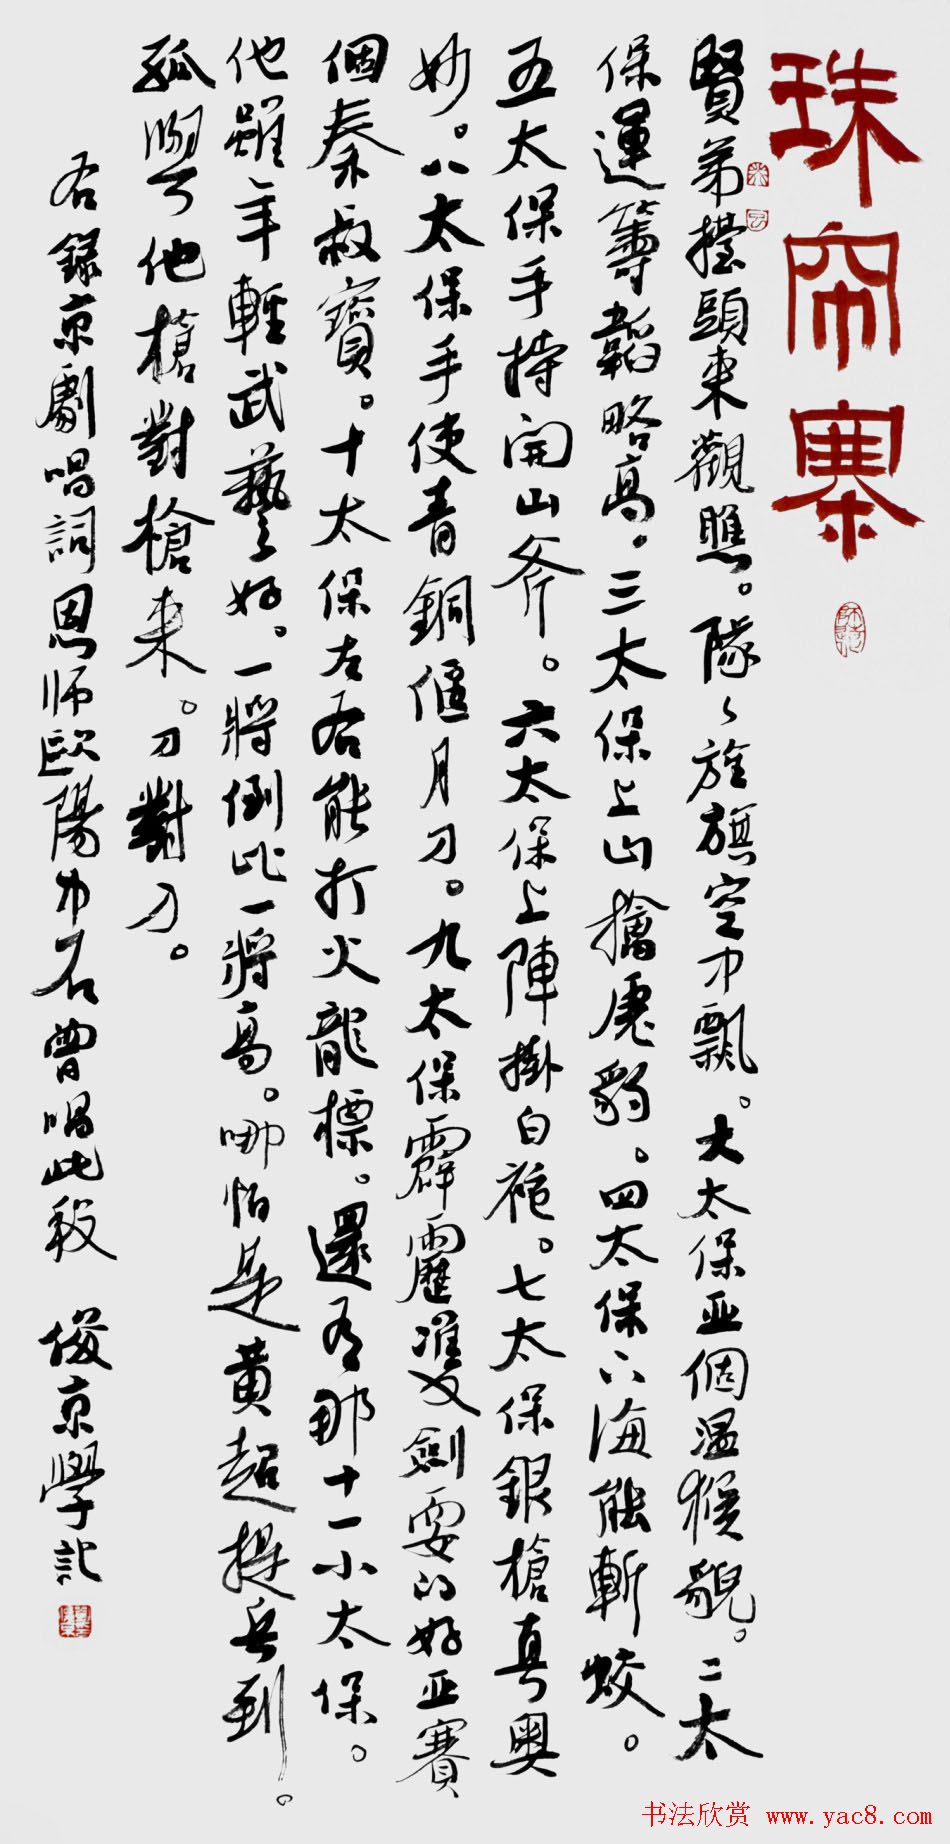 珠帘寨
賢弟擡頭來觀瞧。隊々旌旗空中飄。大太保亚個温猴貌。二太
保運籌韜略高。三太保上山擒虎豹。四太保下海能斬蛟。
五太保手持開山斧。六太保上陣掛白袍。七太保銀槍真奥
妙。八太保手使青銅偃月刀。九太保霹靂雙劍耍的好亚賽
個秦叔寶。十太保左右能打火龍標。還有那十一小太保。
他雖年輕武藝好。一將倒比一將高。哪怕是黄超提兵到。
孤與他槍對槍来。刀對刀。
右録京劇唱詞恩师歐陽中石曾唱此段 俊京學記
书法欣赏 www.yac8.com